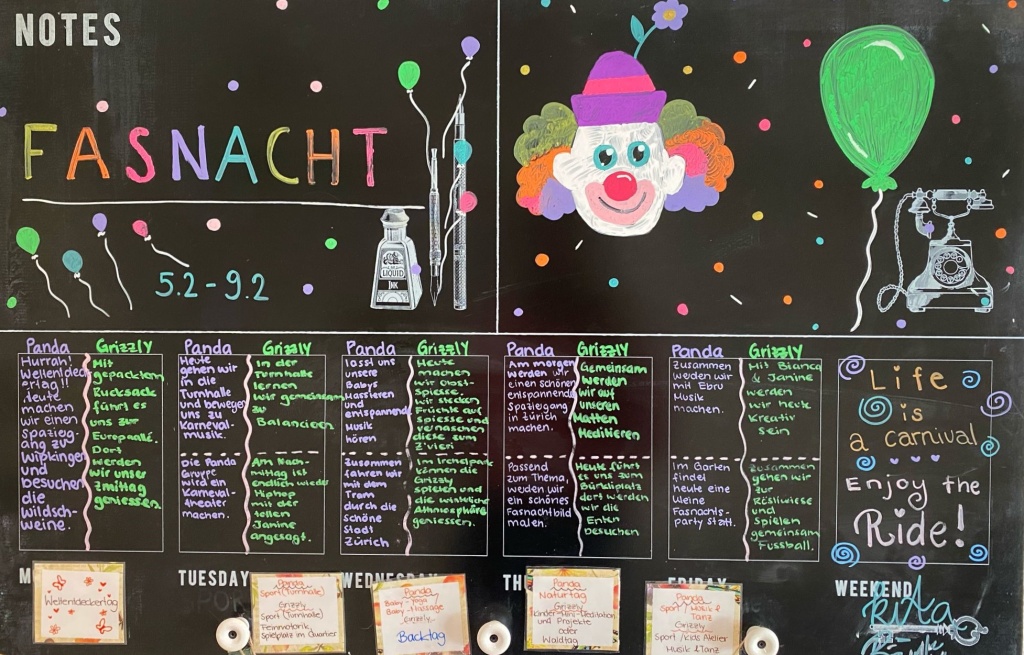 NOTES
FASNACHT
5.2 - 9.2
LIQUID
INK
Panda
Hurrah!
Weltentdeck
ertag!!
Heute
machen
wir einen
Spazieg-
ang zu
Wipkingen
und
besuchen
die
wildsch-
weine.
Grizzly
Mit
gepacktem
Rucksack
führt es
uns zur
Europaallé.
Dort
werden
wir unser
Zmittag
geniessen.
Panda
Heute
gehen wir
in die
Turnhalle
und bewegen
uns zu
Karneval-
musik.
Die Panda
Gruppe
wird ein
Karneval-
theater
machen.
Grizzly
In der
Turnhalle
lernen
wir gemeinsam
zu
Balancieren
Am Nach-
mittag ist
endlich wieder
Hiphop
mit der
tollen
Janine
angesagt.
Panda
lasst uns
unsere
Babys
Massieren
und
entspannende
Musik
hören
Zusammen
fahren wir
mit dem
Tram
durch die
schöne
Stadt
Zürich
Grizzly
Heute
machen
wir Obst-
Spiesse.
Wir stecken
Früchte auf
Spiesse und
vernaschen
diese zum
Z'vieri
Im Irchelpark
können die
Grizzly
spielen und
die winterliche
Athmosphäre
geniessen.
Panda
Am morgen
werden wir
einen schönen
entspannenden
Spaziegang
in Zürich
machen.
Passend
zum Thema
werden wir
ein schönes
Fasnachtbild
malen.
Grizzly
Gemeinsam
werden
wir auf
unseren
Matten
Meditieren
Heute führt
es uns zum
Bürkliplatz
dort werden
wir die
Enten
besuchen
Panda
Zusammen
weden wir
mit Ebru
Musik
machen.
Im Garten
findet
heute eine
kleine
Fasnachts-
party statt.
Grizzly
Mit Bianca
& Janine
werden
wir heute
kreativ
sein
Zusammen
gehen wir
zur
Rösliwiese
und
spielen
gemeinsam
Fussball.
Life
is
a carnival
Enjoy the
Ride!
M
TUESDAY
WEDNESDAY
TH
FRIDAY
WEEKEND
Weltentdeckertag
Panda
Sport (Turnhalle)
Grizzly
Sport (Turnhalle)
Feinmotorik
Spielplatz im Quartier
Panda
Baby-Yoga
Baby-Massage
Grizzly
Backtag
Panda
Naturtag
Grizzly
Kinder-Mini-Meditation
und Projekte
oder
Waldtag
Panda
Sport / Musik &
Tanz
Grizzly
Sport / Kids Atelier
Musik & Tanz
kita